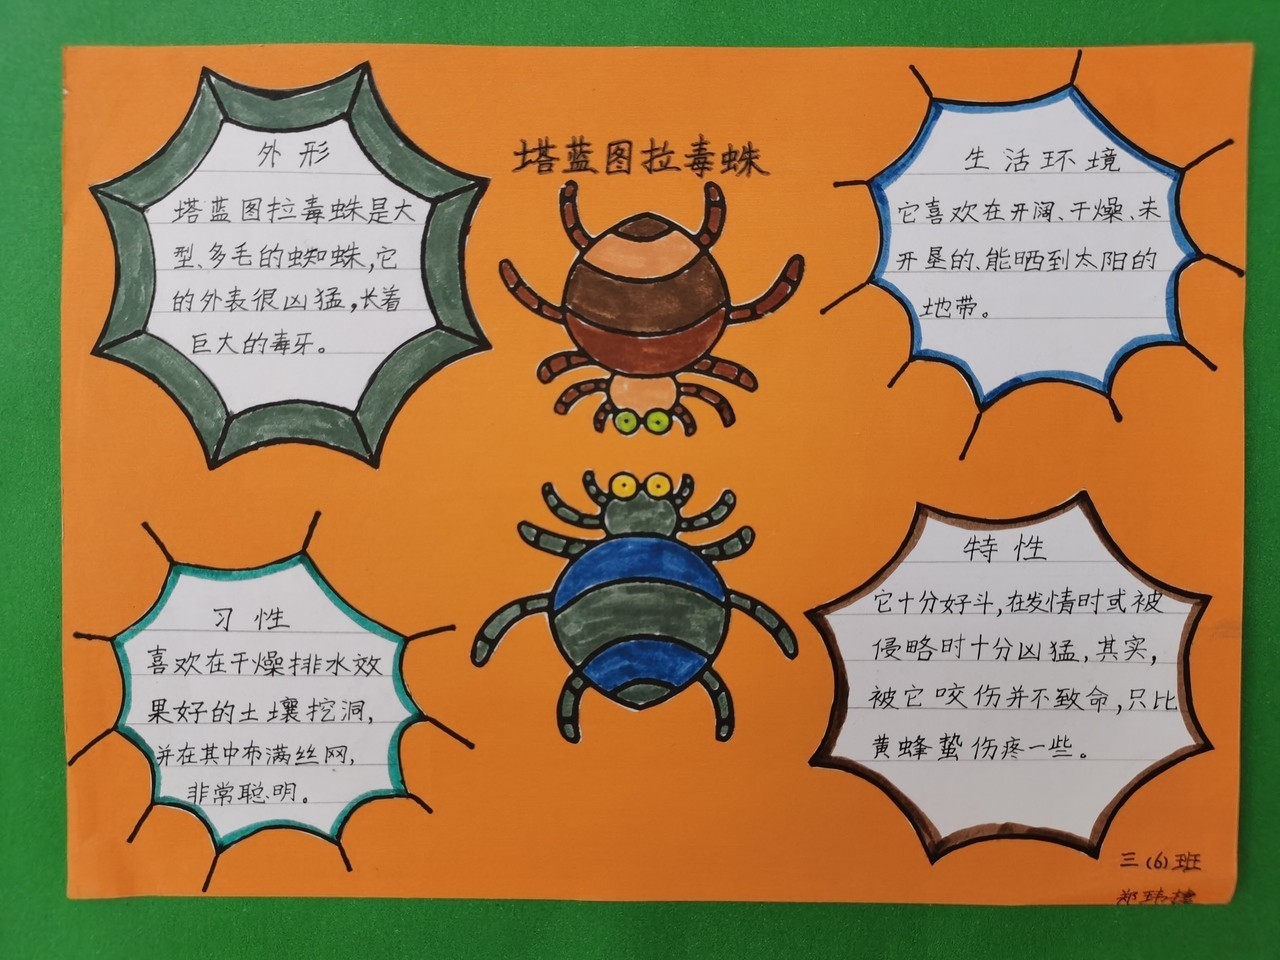 塔蓝图拉毒蛛
外形
塔蓝图拉毒蛛是大
型、多毛的蜘蛛,它
的外表很凶猛,长着
巨大的毒牙。
生活环境
它喜欢在开阔、干燥、未
开垦的、能晒到太阳的
地带。
习性
喜欢在干燥排水效
果好的土壤挖洞,
并在其中布满丝网,
非常聪明。
特性
它十分好斗,在发情时或被
侵略时十分凶猛,其实,
被它咬伤并不致命,只比
黄蜂蛰伤疼一些。
三(6)班
郑玮